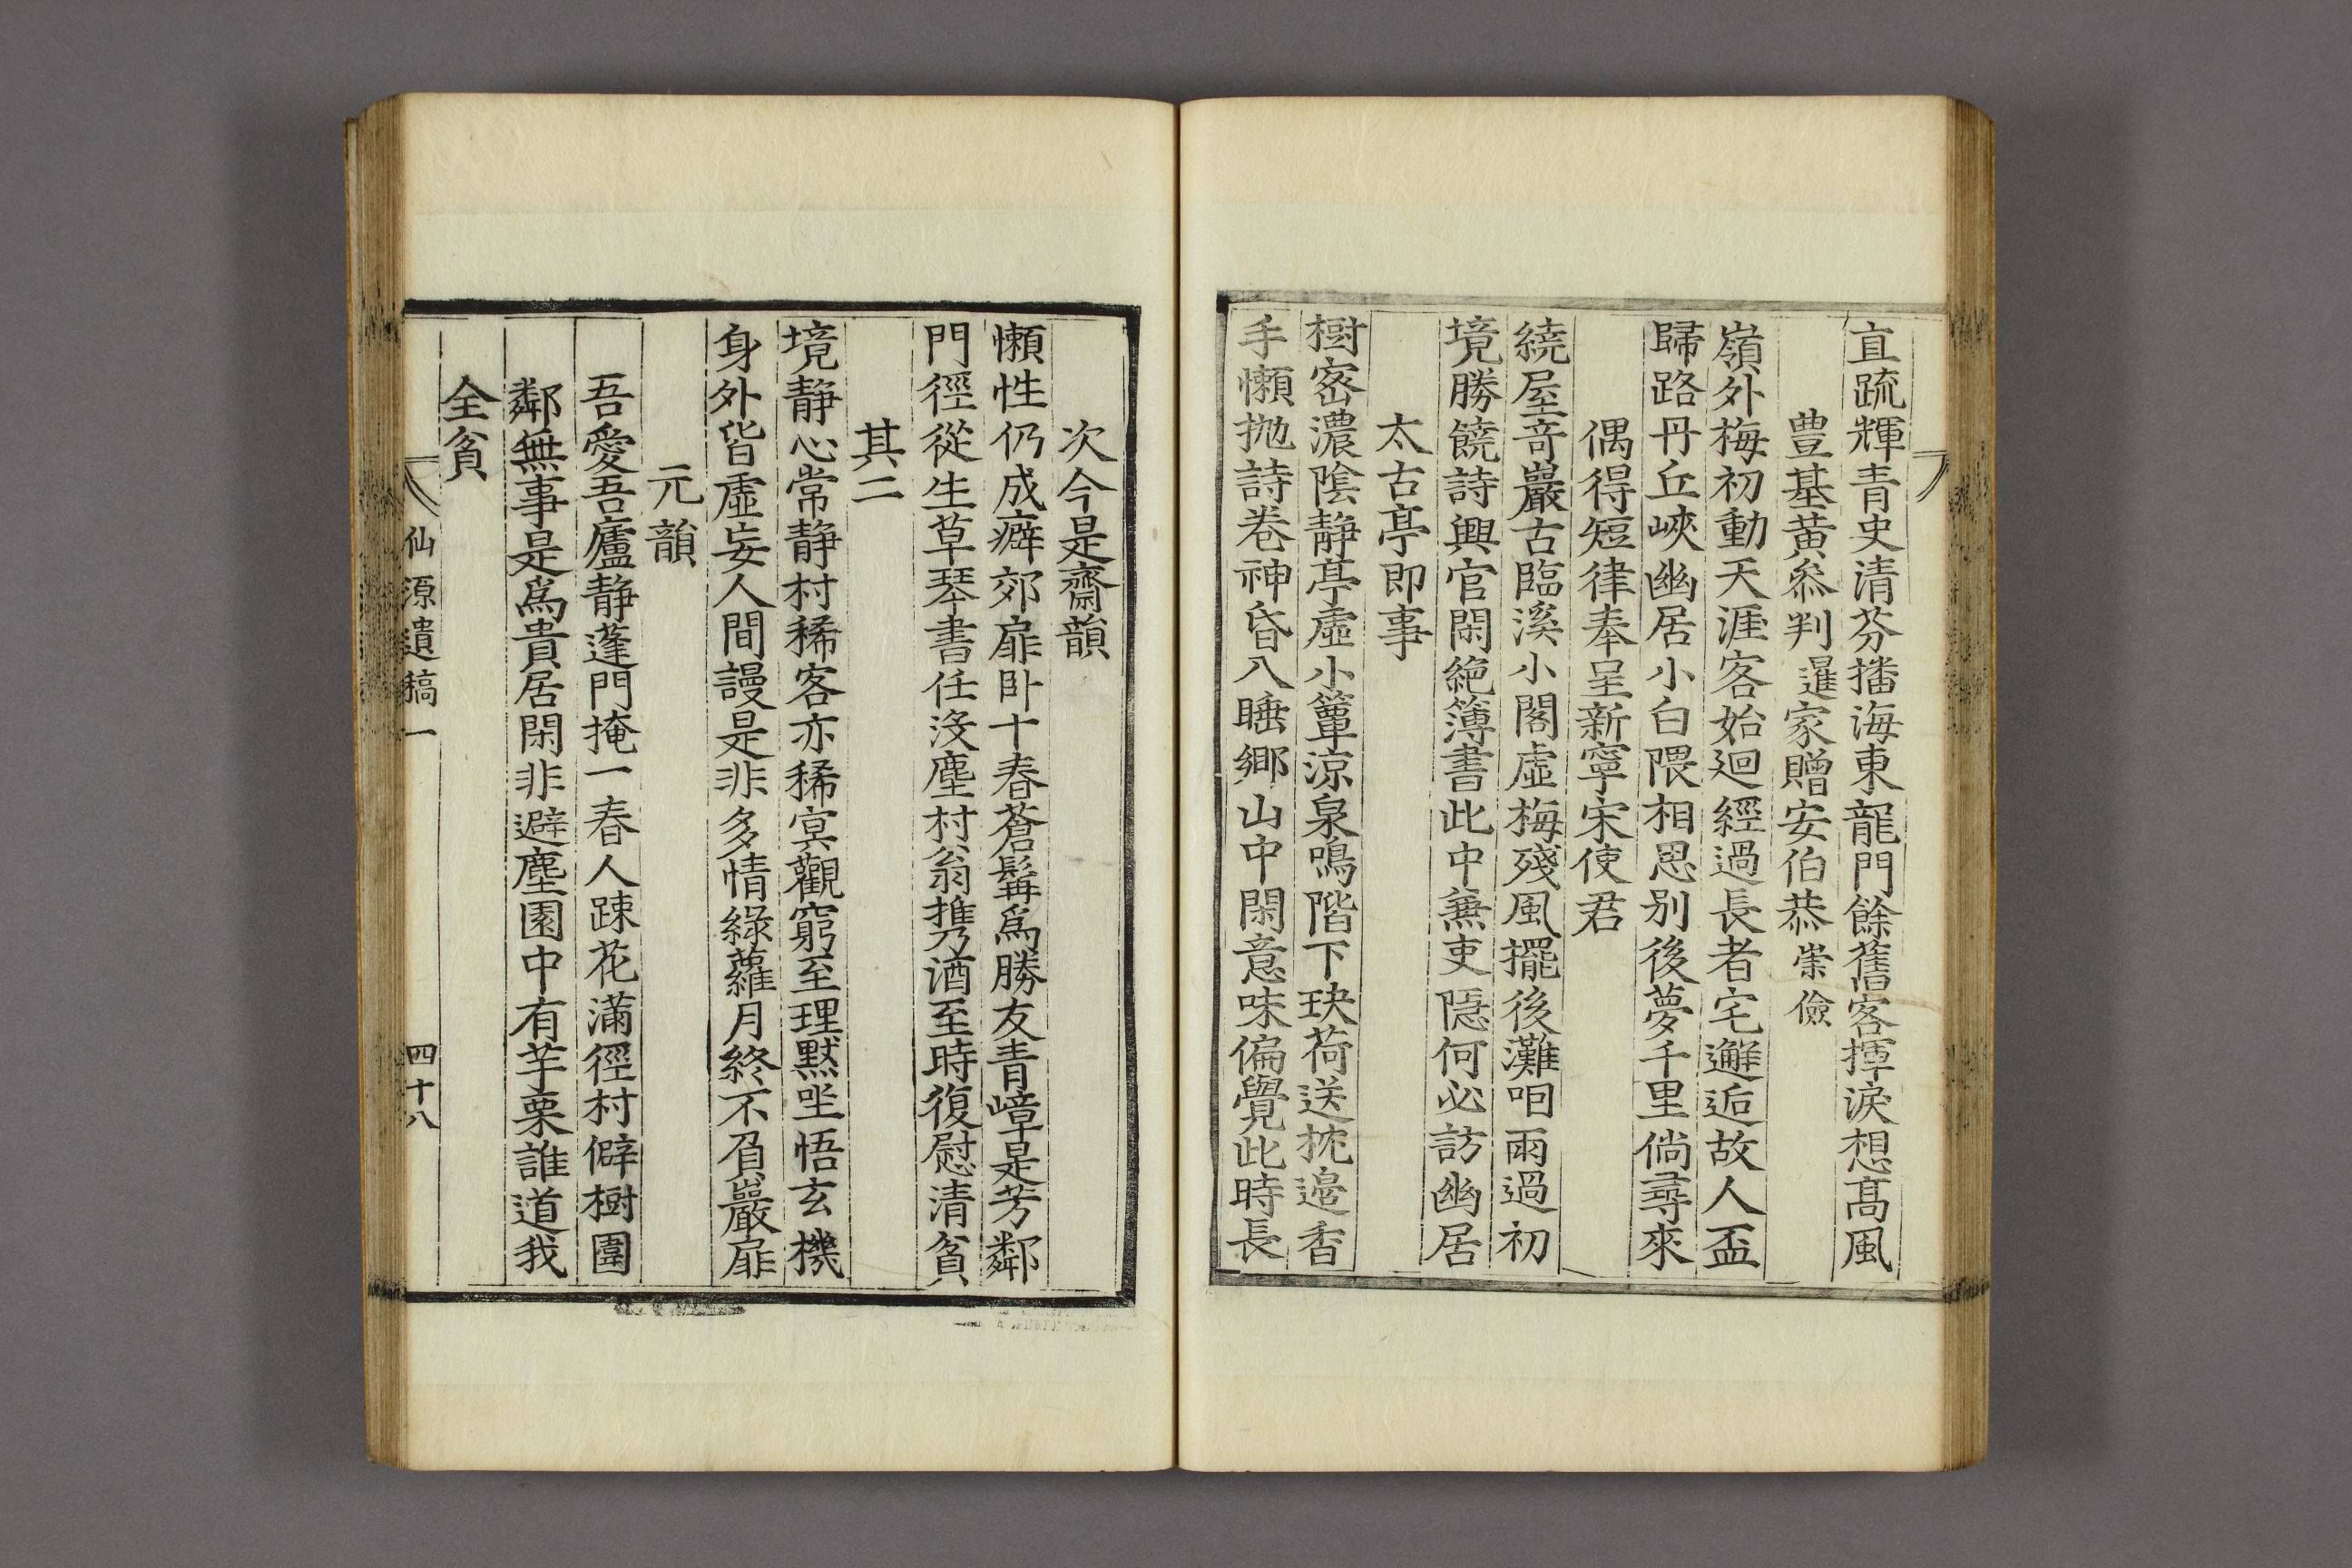 直疏輝青史清芬播海東龍門餘舊客揮淚想高風
豊基黃叅判暹家贈安伯恭崇儉
嶺外梅初動天涯客始迴經過長者宅邂逅故人盃
歸路丹丘峽幽居小白隈相思別後夢千里倘尋來
偶得短律奉呈新寧宋使君
繞屋竒巖古臨溪小閣虛梅殘風擺後灘咽雨過初
境勝饒詩興官閑絶簿書此中兼吏隱何必訪幽居
太古亭即事
樹密濃陰靜亭虛小簟涼泉鳴階下玦荷送枕邊香
手懶抛詩卷神昏入睡鄉山中閑意味偏覺此時長
次今是齋韻
懶性仍成癖郊扉卧十春蒼髯爲勝友青嶂是芳鄰
門徑從生草琴書任沒塵村翁携酒至時復慰清貧
其二
境静心常静村稀客亦稀冥觀窮至理默坐悟玄機
身外皆虛妄人間謾是非多情綠蘿月終不負巖扉
元韻
吾愛吾廬静蓬門掩一春人踈花滿徑村僻樹圍
鄰無事是爲貴居閑非避塵園中有芋栗誰道我
全貧
仙源遺稿一
四十八